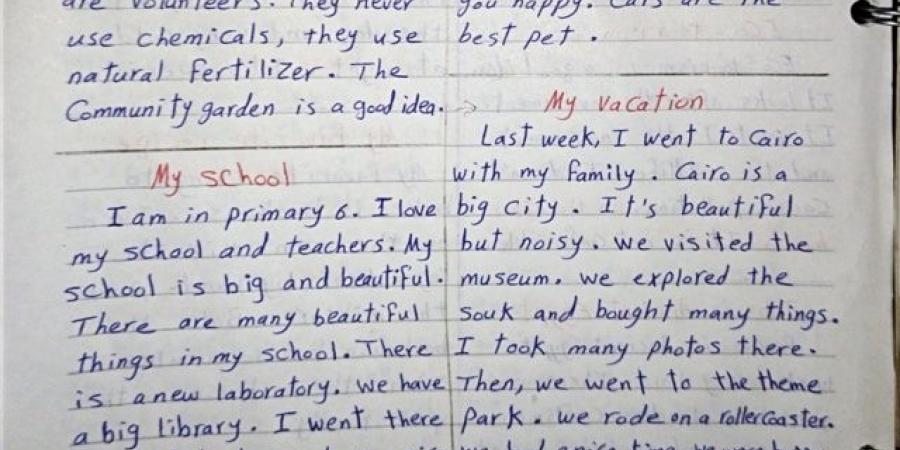 are volunteers. They never
use chemicals, they use
natural fertilizer. The
Community garden is a good idea.
My school
I am in primary 6. I love
my school and teachers. My
school is big and beautiful.
There are many beautiful
things in my school. There
is a new laboratory. we have
a big library. I went there
you happy. Cats are the
best pet.
My vacation
Last week, I went to Cairo
with my family. Cairo is a
big city. It's beautiful
but noisy. we visited the
museum. we explored the
souk and bought many things.
I took many photos there.
Then, we went to the theme
park. we rode on a rollercoaster.